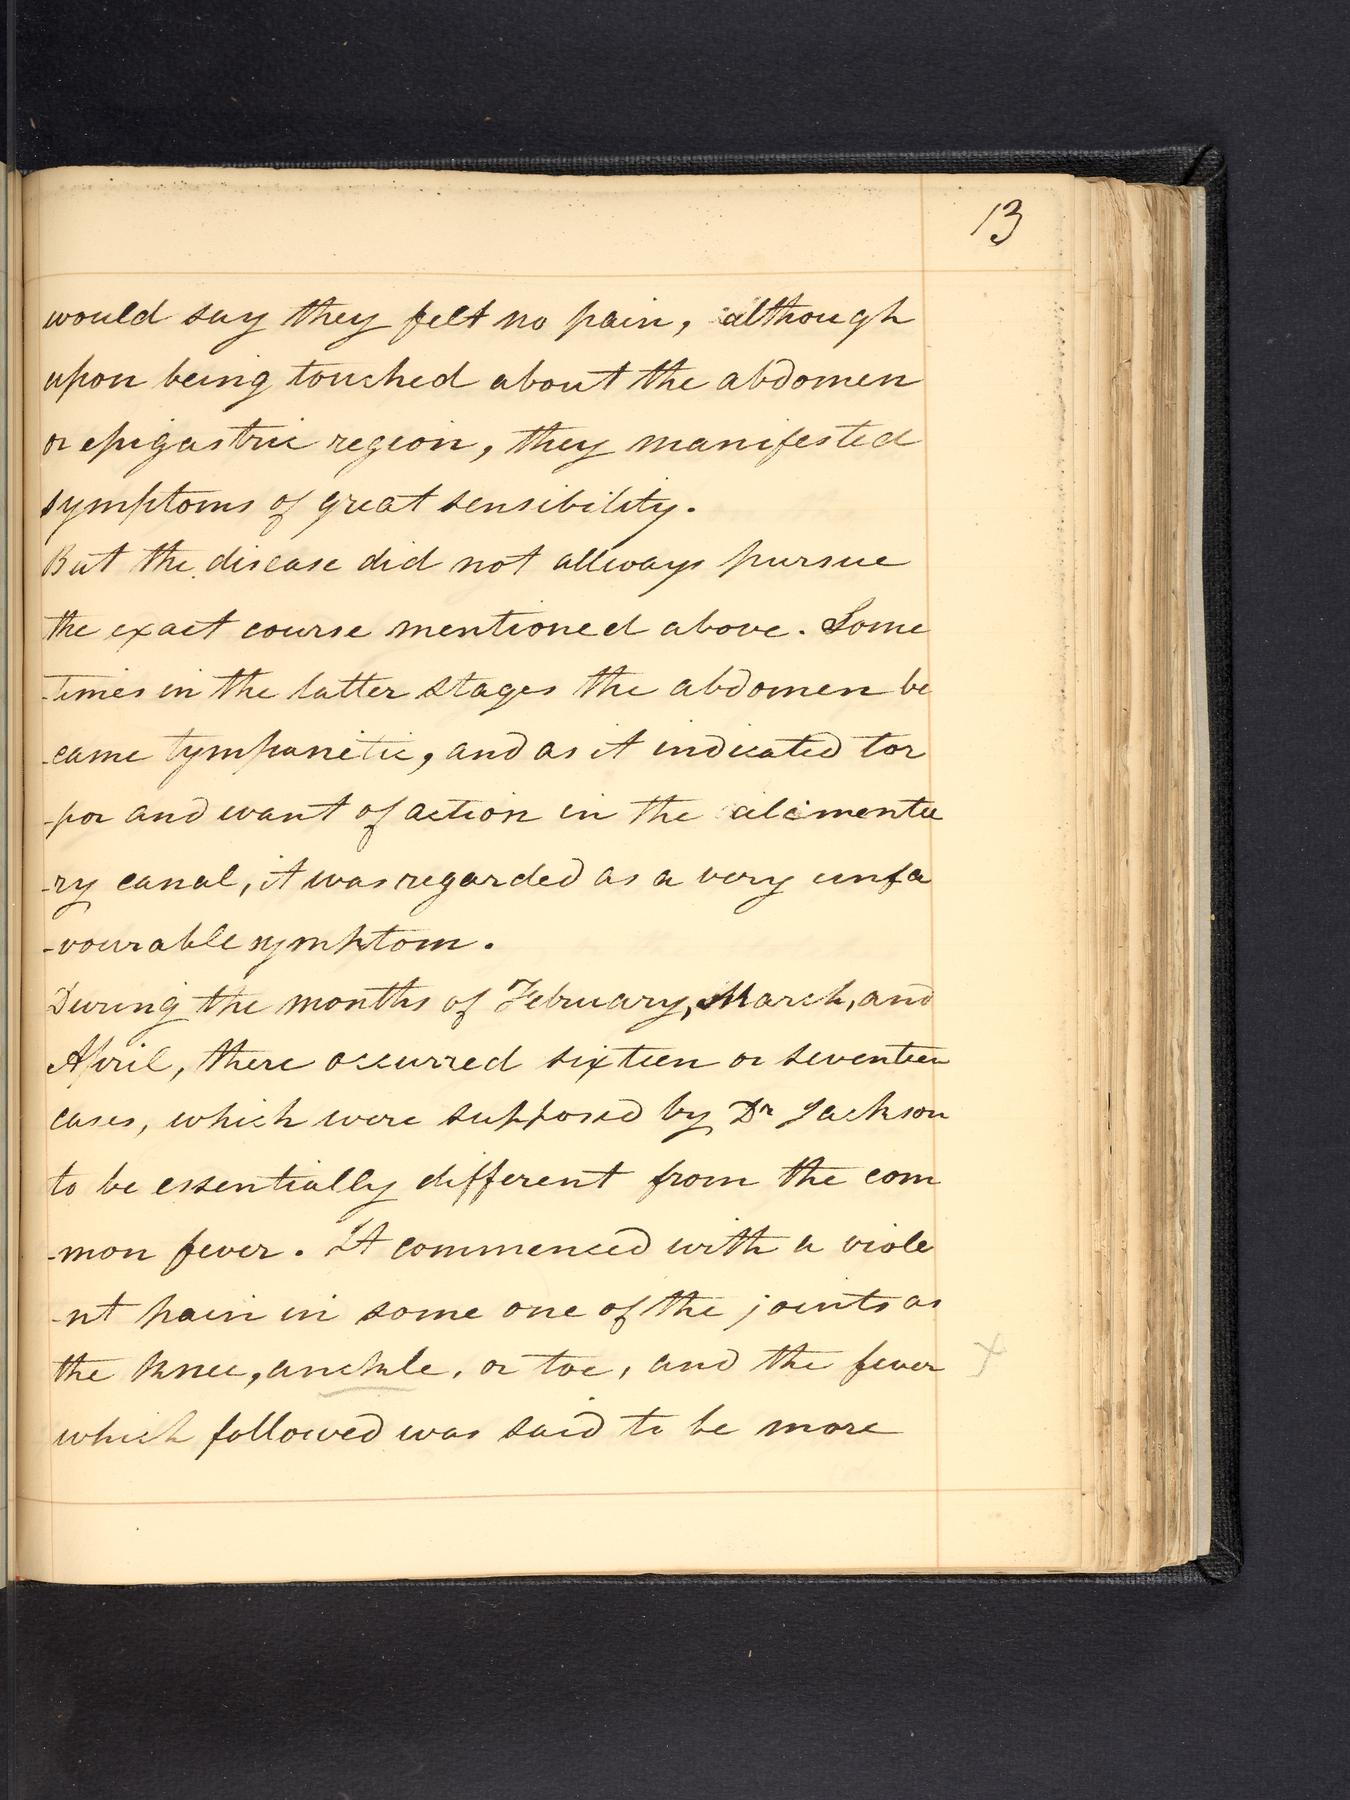 13
would say they felt no pain, although
upon being touched about the abdomen
or epigastric region, they manifested
symptoms of great sensibility.
But the disease did not allways pursue
the exact course mentioned above. Some
-times in the latter stages the abdomen be
-came tympanitic, and as it indicated tor
-por and want of action in the alimenta
-ry canal, it was regarded as a very unfa
-vourable symptom.
During the months of February, March, and
April, there occurred sixteen or seventeen
cases, which were supposed by Dr Jackson
to be essentially different from the com
-mon fever. It commenced with a viole
-nt pain in some one of the joints as
the knee, anckle, or toe, and the fever x
which followed was said to be more